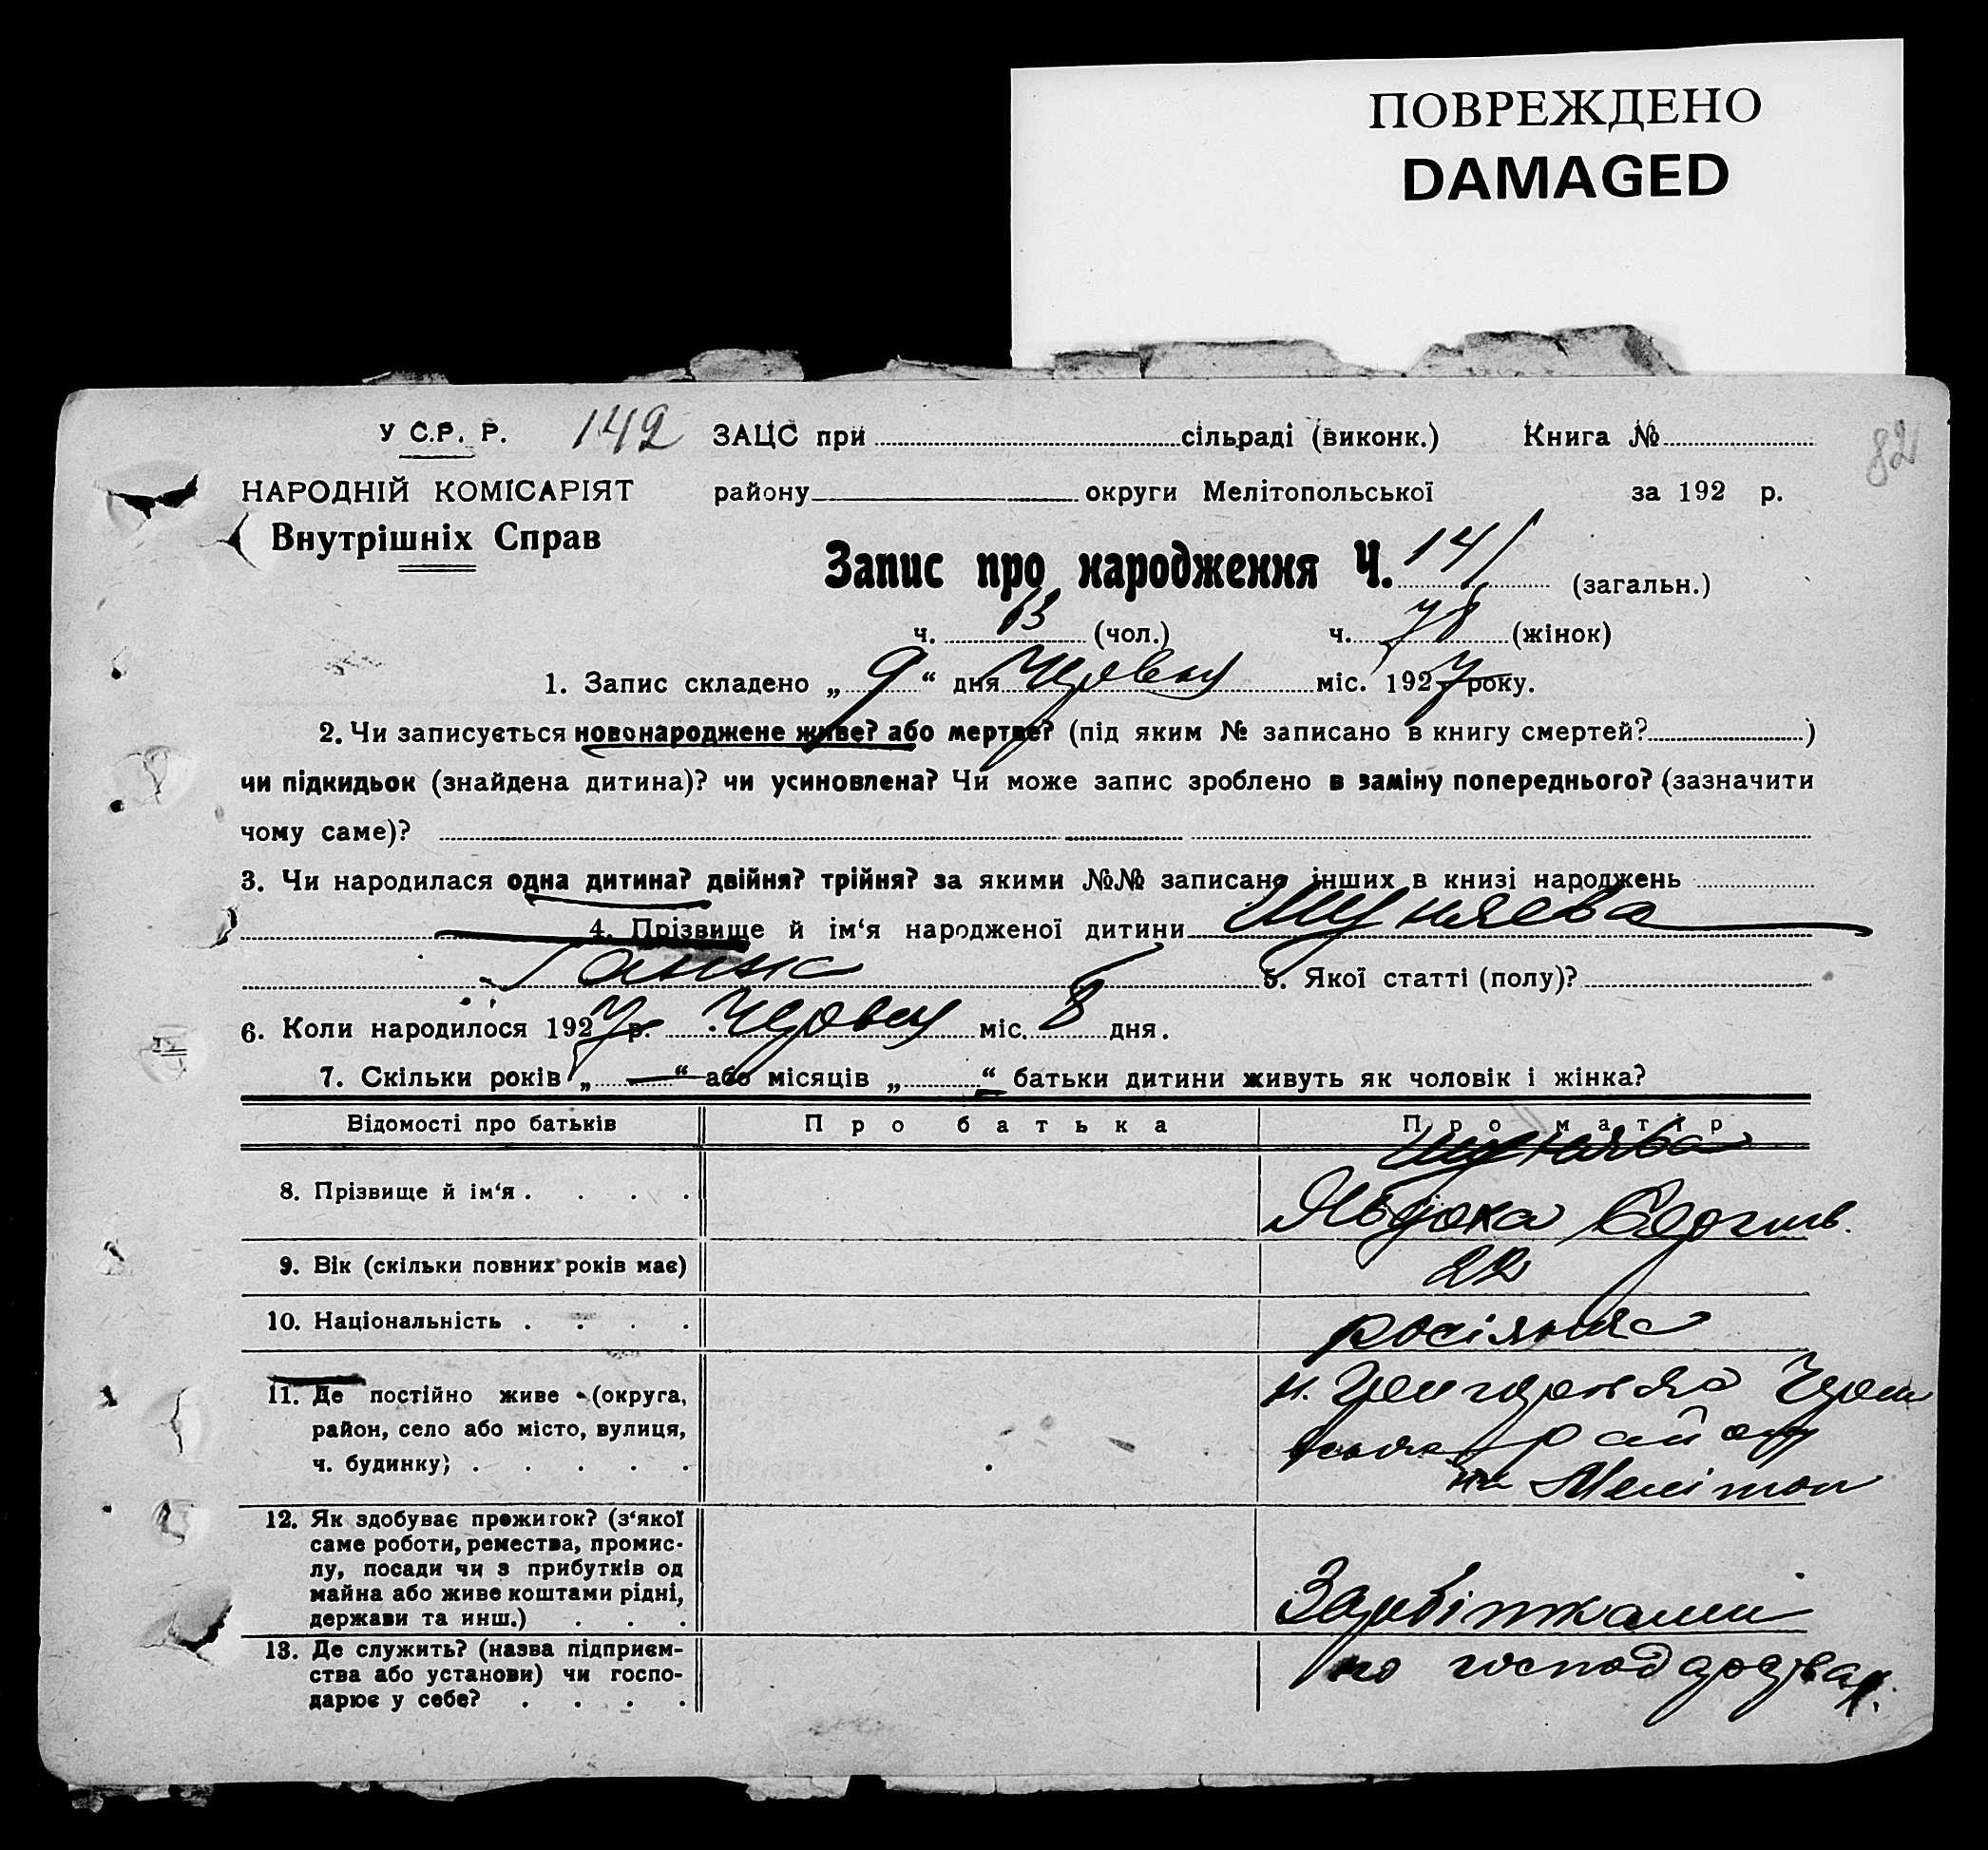 ПОВРЕЖДЕНО
DAMAGED
У С.Р. Р. 142 ЗАЦС при сільраді (виконк.) Книга № 82
НАРОДНІЙ КОМІСАРІЯТ району округи Мелітопольської за 192 р.
Внутрішніх Справ
Запис про народження Ч. 141 (загальн.)
ч. (чол.) ч. 78 (жінок)
1. Запис складено „ 9 “ дня Червня міс. 1927 року.
2. Чи записується новонароджене живе? або мертве? (під яким № записано в книгу смертей? )
чи підкидьок (знайдена дитина)? чи усиновлена? Чи може запис зроблено в заміну попереднього? (зазначити
чому саме)?
3. Чи народилася одна дитина? двійня? трійня? за якими №№ записано інших в книзі народжень
4. Прізвище й ім‘я народженої дитини
Ганна 5. Якої статті (полу)?
6. Коли народилося 1927 р. Червня міс. 8 дня.
7. Скільки років „ — “ або місяців „ “ батьки дитини живуть як чоловік і жінка?
Відомості про батьків Про батька Про матір
8. Прізвище й ім‘я . . . .
9. Вік (скільки повних років має) 22
10. Національність . . . . росіянка
11. Де постійно живе (округа,
район, село або місто, вулиця, району
ч. будинку) . . . . . на Мелітоп
12. Як здобуває прожиток? (з‘якої
саме роботи, ремества, промис-
лу, посади чи з прибутків од
майна або живе коштами рідні, Заробітками
держави та инш.) . . .
13. Де служить? (назва підприєм-
ства або установи) чи госпо- по
дарює у себе? . . . .